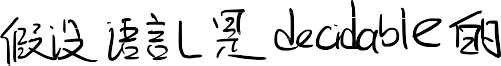 假设语言L是decidable的